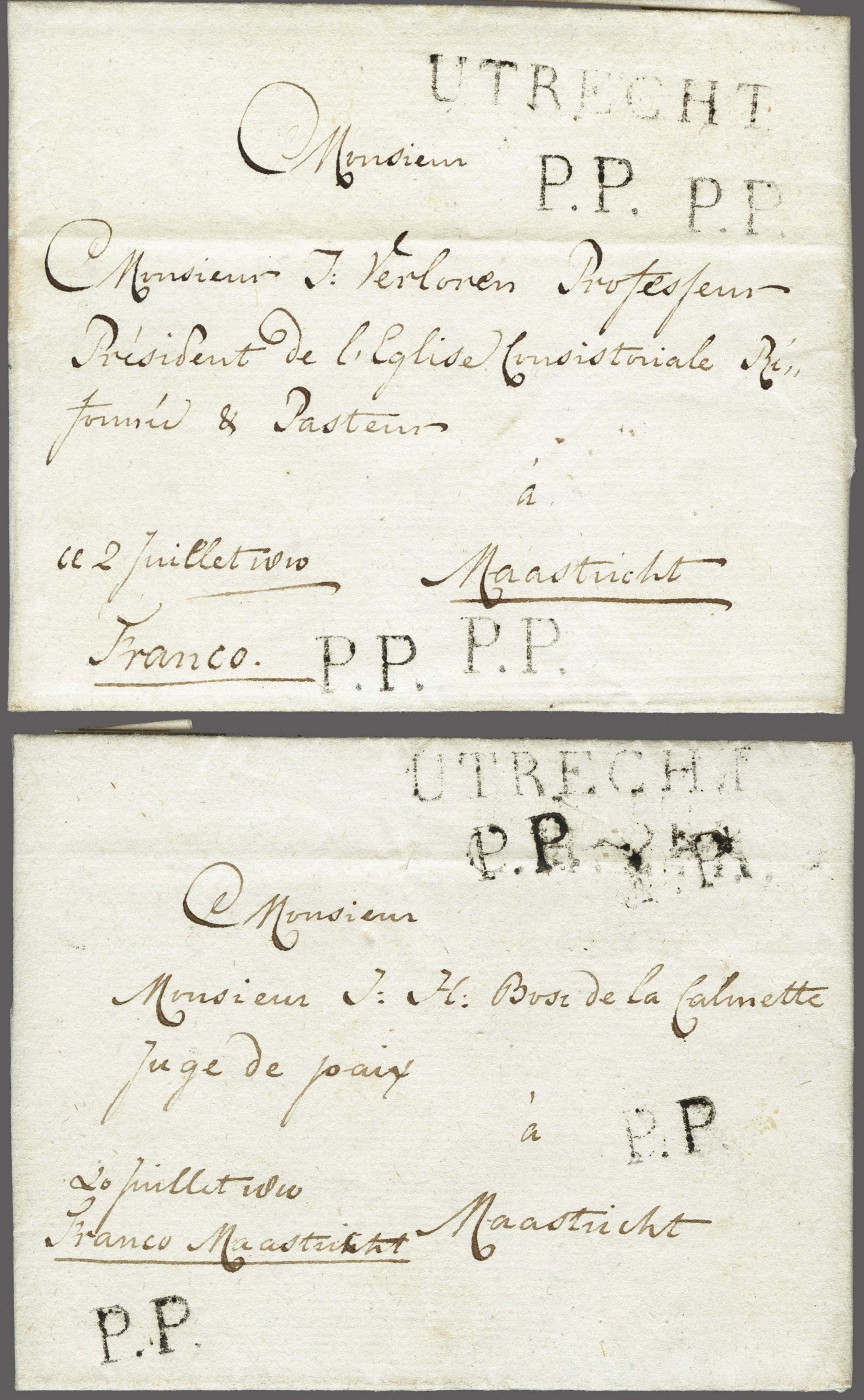 UTRECHT
P.P. P.P.
Monsieur
Monsieur J: Verloren Professeur
Président de l'Eglise Consistoriale Ré,,
formée & Pasteur
à
ce 2 Juillet 1810 Maastricht
Franco. P.P. P.P.
UTRECHT
P.P. P.P.
Monsieur
Monsieur J: H: Bosc de la Calmette
Juge de paix
à P.P.
20 Juillet 1810
Franco Maastricht Maastricht
P.P.